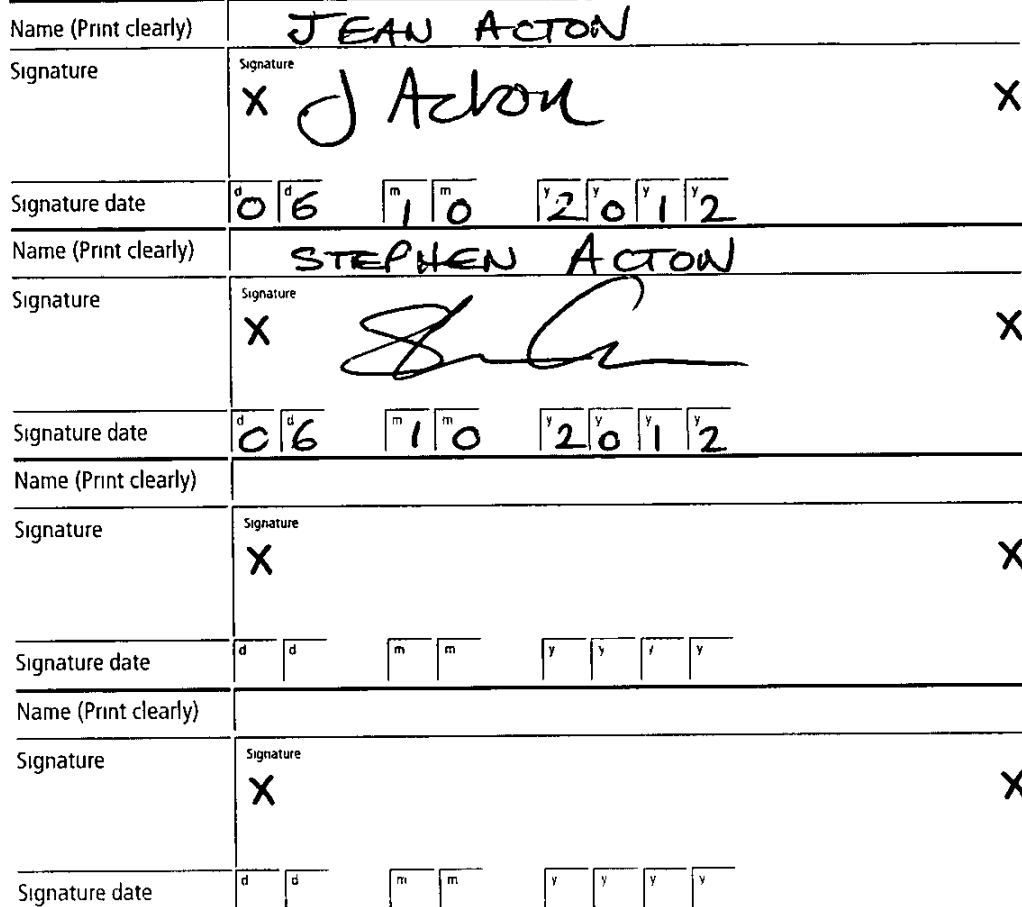 Name (Print clearly) JEAN ACTON
Signature Signature
X J Acton X
Signature date d 0 d 6 m 1 m 0 y 2 y 0 y 1 y 2
Name (Print clearly) STEPHEN ACTON
Signature Signature
X X
Signature date d 0 d 6 m 1 m 0 y 2 y 0 y 1 y 2
Name (Print clearly)
Signature Signature
X X
Signature date d d m m y y y y
Name (Print clearly)
Signature Signature
X X
Signature date d d m m y y y y